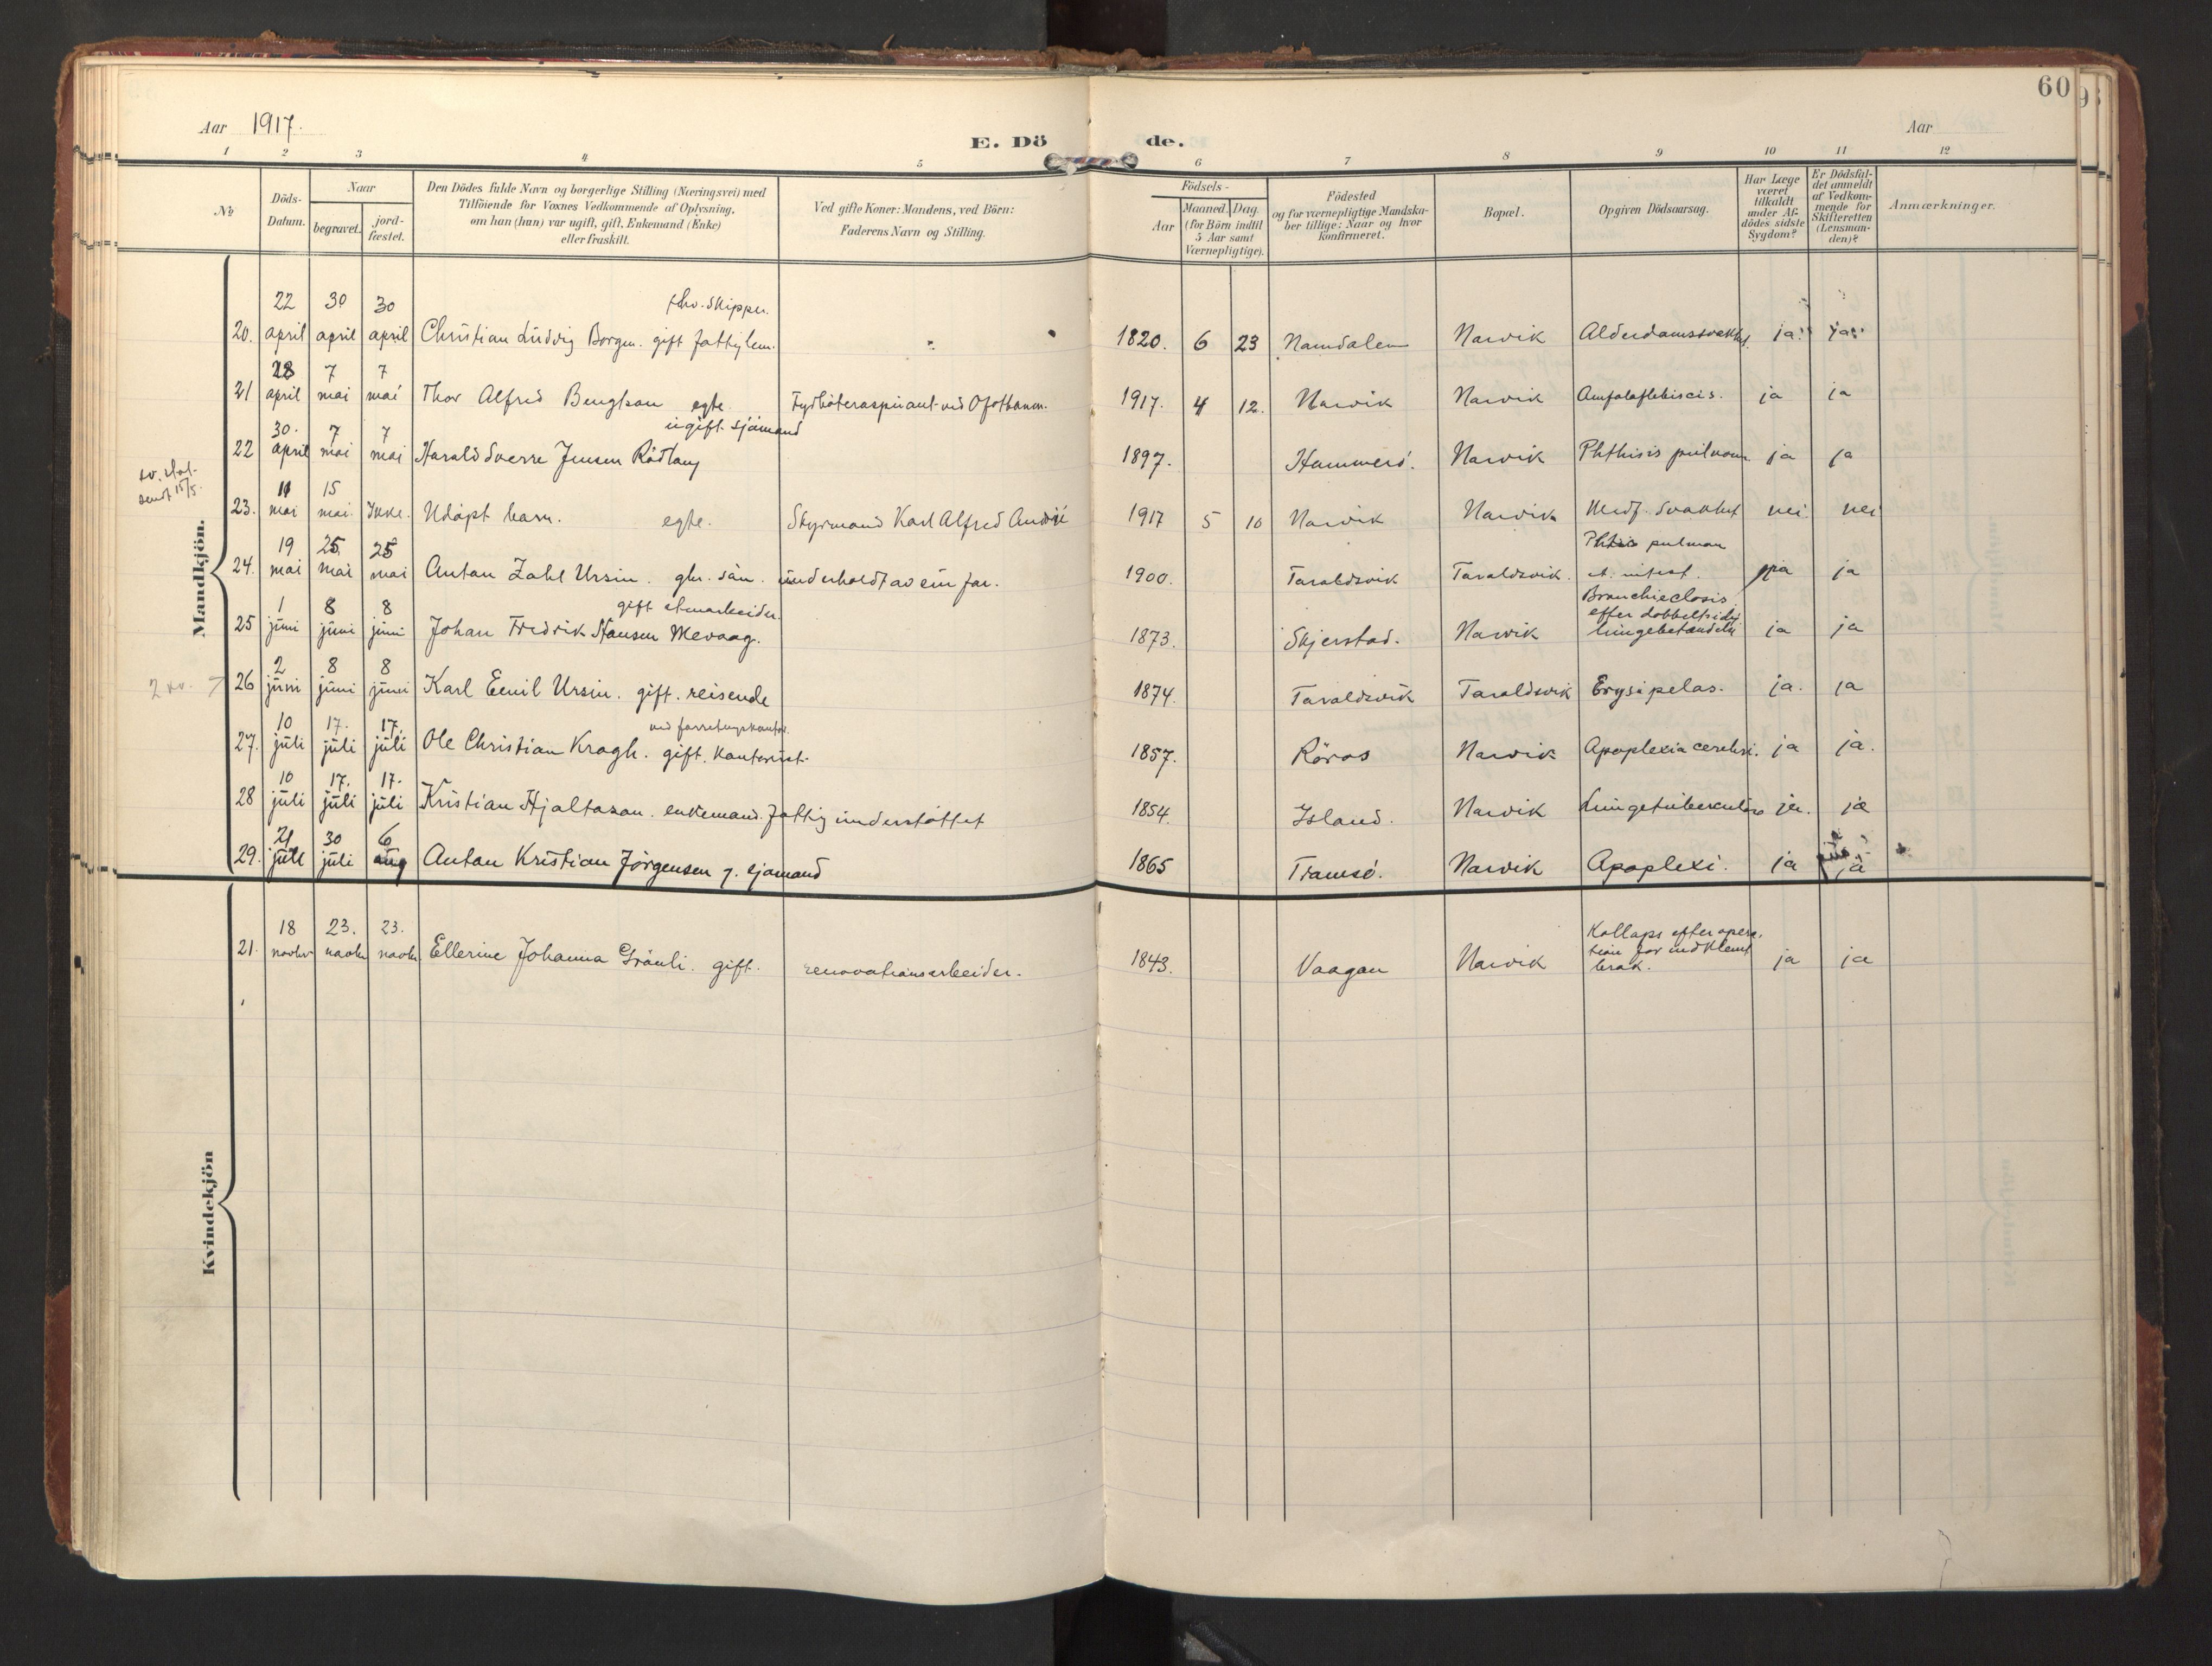 60
Aar 1917.
E. Dö de.
Aar
1 2 3 4 5 6 7 8 9 10 11 12
№
Döds-Datum.
Naar
begravet.
jord-fæstet.
Den Dödes fulde Navn og borgerlige Stilling (Næringsvei) med
Tilföiende for Voxnes Vedkommende af Oplysning,
om han (hun) var ugift, gift, Enkemand (Enke)
eller fraskilt.
Ved gifte Koner: Mandens, ved Börn:
Faderens Navn og Stilling.
Födsels-
Aar
Maaned. Dag.
(for Börn indtil
5 Aar samt
Værnepligtige).
Födested
og for værnepligtige Mandska-
ber tillige: Naar og hvor
konfirmeret.
Bopæl.
Opgiven Dödsaarsag.
Har Læge
været
tilkaldt
under Af-
dödes sidste
Sygdom?
Er Dödsfal-
det anmeldt
af Vedkom-
mende for
Skifteretten
(Lensman-
den)?
Anmærkninger.
Mandkjön.
fhv. skipper.
20. 22 april 30 april 30 april Christian Ludvig Borgen. gift fattiglem. " 1820. 6 23 Namdalen Narvik Alderdomssvakhet. ja ja
21 28 april 7 mai 7 mai Thor Alfred Bengtson egte. Fyrböteraspirant ved Ofotbanen. 1917. 4 12. Narvik Narvik ja ja
ugift sjömand
22 30. april 7 mai 7 mai Harald Sverre Jensen Rödtang 1897. Hammerö. Narvik Phthisis pulmon. ja ja
sendt 15/5.
23. 11 mai 15 mai. Ikke. Udöpt barn. egte. Styrmand Karl Alfred 1917 5 10 Narvik Narvik Medf. svakhet nei nei
24. 19 mai 25 mai 25 mai Anton Zahl Ursin. underholdt av sin far. 1900. Taraldsvik Taraldsvik. pulmon et. intest. ja ja
25 1 juni 8 juni 8 juni Johan Fredrik Hansen Mevaag. gift 1873. Skjerstad. Narvik efter dobbeltsidig lungebetændelse ja ja
2
26 2 juni 8 juni 8 juni Karl Eenil Ursin. gift. reisende 1874. Taraldsvik Taraldsvik Erysipelas. ja. ja
27. 10 juli 17. juli 17. juli Ole Christian Kragh. gift. kontorist. ved forretningskontor. 1857. Röros Narvik Apoplexia cerebri. ja ja.
28 10 juli 17. juli 17. juli Kristian Hjaltason. enkemand. Fattig understöttet 1854. Island. Narvik Lungetuberkulose ja. ja
29. 21 juli 30 juli 6 aug Anton Kristian Jörgensen g. sjömand 1865 Tromsö. Narvik Apoplexi. ja ja
Kvindekjön
21. 18 novbr 23. novbr 23. novbr Ellerine Johanna Grönli. gift. renovationsarbeider. 1843. Vaagan Narvik Kollaps efter opera-
tion for indklemt
brok. ja ja